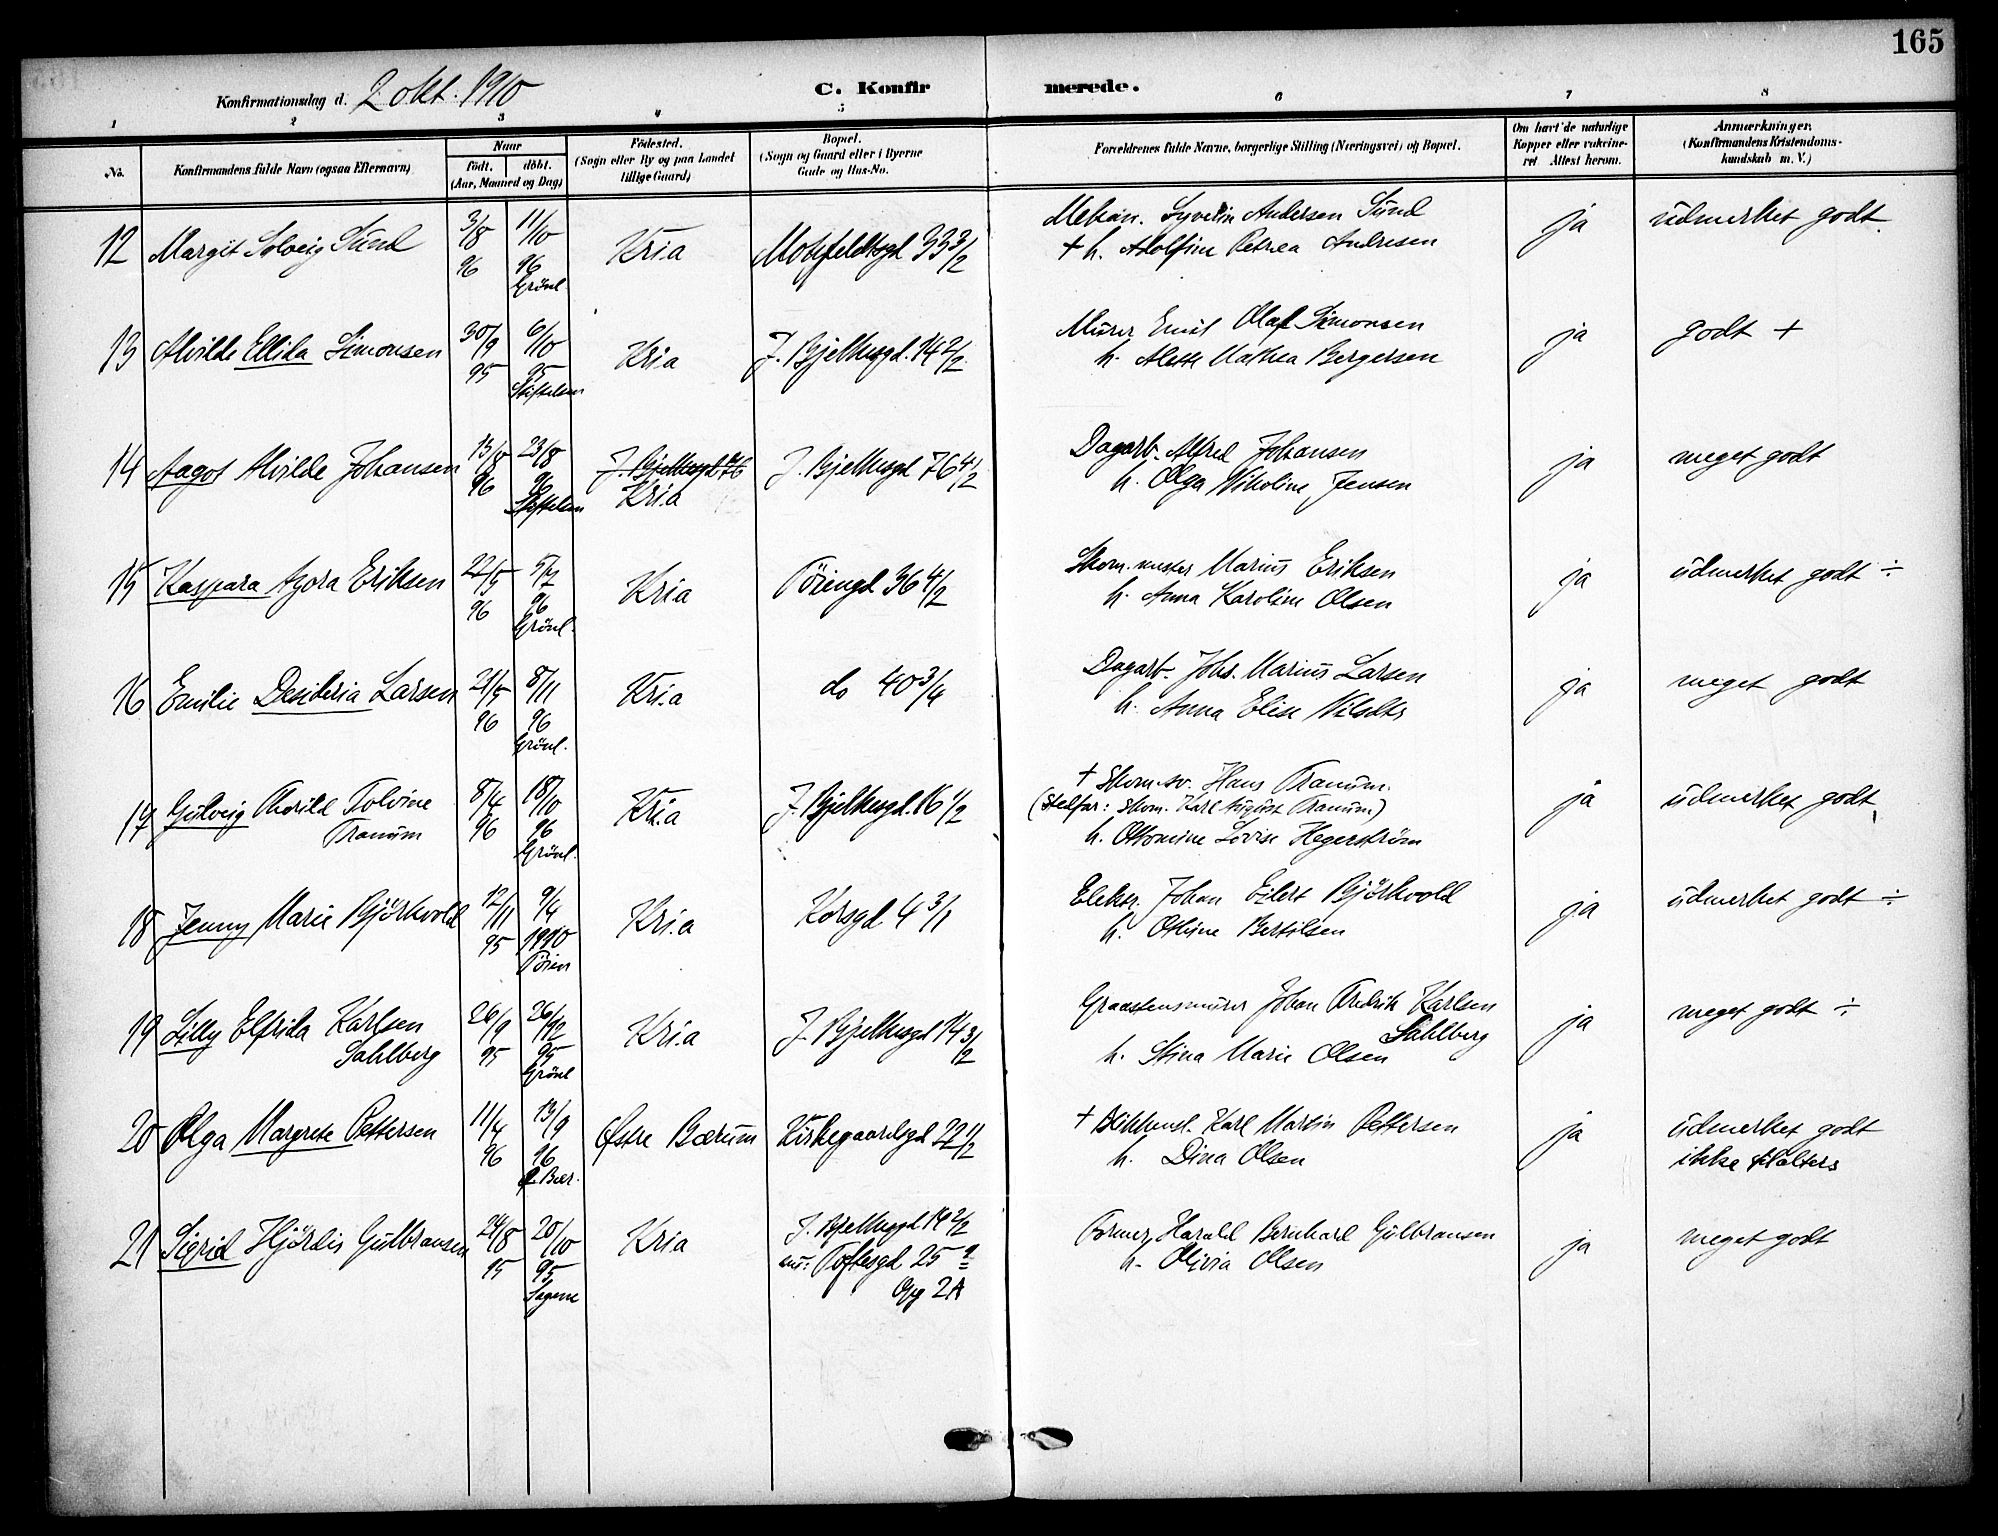 165
Konfirmationsdag d. 2 okt. 1910
C. Konfirmerede.
1 2 3 4 5 6 7 8
No.
Konfirmandens fulde Navn (ogsaa Efternavn)
Naar
födt. döbt.
(Aar, Maaned og Dag)
Födested.
(Sogn eller By og paa Landet
tillige Gaard)
Bopæl.
(Sogn og Gaard eller i Byerne
Gade og Hus-No.
Forældrenes fulde Navne, borgerlige Stilling (Næringsvei) og Bopæl.
Om havt de naturlige
Kopper eller vakcine-
ret Attest herom.
Anmærkninger.
(Konfirmandens Kristendoms-
kundskab m. V.)
12 Margit Solveig Sund 3/8 96 11/10 96 Grönl. Kria 33 3/2
Mekan. Syverin Andersen Sund
+ h. Adolfine Petrea Andresen
ja udmerket godt
13 Alvilde Ellida Simonsen 30/9 95 6/10 95 Stiftelsen Kria J. Bjelkesgd. 14 2/2
Murer Emil Olaf Simonsen
h. Alette Mathea Bergersen
ja godt +
14 Aagot Alvilde Johansen 15/8 96 23/8 96 Stiftelsen J. Bjelkesgd. 76 Kria J. Bjelkesgd 76 4/2
Dagarb. Alfred Johansen
h. Olga Nikoline Jensen
ja meget godt
15 Kaspara Azora Eriksen 22/5 96 5/7 96 Grönl. Kria Töiengd 36 4/2
Skom. mester Marius Eriksen
h. Anna Karoline Olsen
ja udmerket godt ÷
16 Emilie Desideria Larsen 21/5 96 8/11 96 Grönl. Kria do 40 3/4
Dagarb. Johs. Marius Larsen
h. Anna Elise
ja meget godt
17 Gulveig Thorild Tolvine
Tranum 8/4 96 18/10 96 Grönl. Kria J. Bjelkesgd. 16 1/2
+ Skom.sv. Hans Tranum.
(Stedfar: Skom. Karl August Tranum)
h. Ottomine Lovise Hegerström
ja udmerket godt
18 Jenny Marie Björkvold 12/11 95 9/4 1910 Töien Kria Korsgd. 4 3/1
Elektr. Johan Eilert Björkvold
h. Othine Bertilsen
ja udmerket godt ÷
19 Lilly Elfrida Karlsen
Sahlberg 26/9 95 26/12 95 Grönl Kria J. Bjelkesgd 14 3/2
Graastensmurer Johan Fredrik Karlsen
Sahlberg
h. Stina Marie Olsen
ja meget godt ÷
20 Olga Margrete Pettersen 11/4 96 13/9 96 Ø. Bær. Østre Bærum Kirkegaardsgd 22 1/2
+ Karl Martin Pettersen
h. Dina Olsen
ja udmerket godt
ikke
21 Sigrid Hjördis Gulbransen 24/8 95 20/10 95 Sagene Kria J. Bjelkesgd 14 2/2
Toftesgd 25
Opg 2A
Former Harald Bernhard Gulbransen
h. Olivia Olsen
ja meget godt